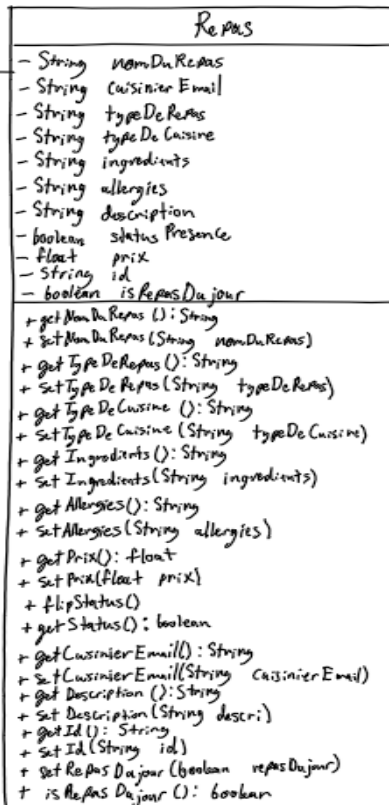 Repas
- String nomDuRepas
- String cuisinierEmail
- String typeDeRepas
- String typeDeCuisine
- String ingredients
- String allergies
- String description
- boolean statusPresence
- float prix
- String id
- boolean isRepasDujour
+ getNomDuRepas (): String
+ setNomDuRepas(String nomDuRepas)
+ getTypeDeRepas(): String
+ setTypeDeRepas(String typeDeRepas)
+ getTypeDeCuisine (): String
+ setTypeDeCuisine (String typeDeCuisine)
+ getIngredients(): String
+ setIngredients(String ingredients)
+ getAllergies(): String
+ setAllergies(String allergies)
+ getPrix(): float
+ setPrix(float prix)
+ flipStatus()
+ getStatus(): boolean
+ getCuisinierEmail(): String
+ setCuisinierEmail(String cuisinierEmail)
+ getDescription (): String
+ setDescription(String descri)
+ getId(): String
+ setId(String id)
+ setRepasDujour(boolean repasDujour)
+ isRepasDujour(): boolean